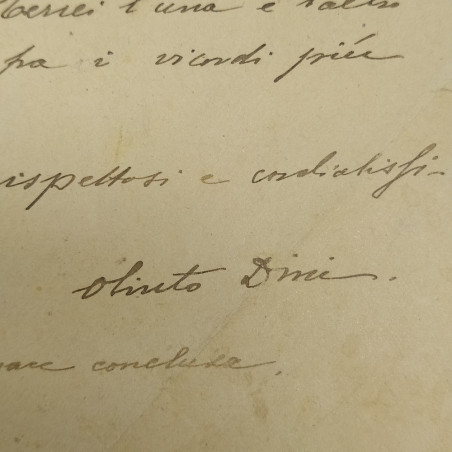 terrei l'una e l'altro
fra i ricordi più
rispettosi e cordialissi-
Olinto Dini.
pace conclusa.